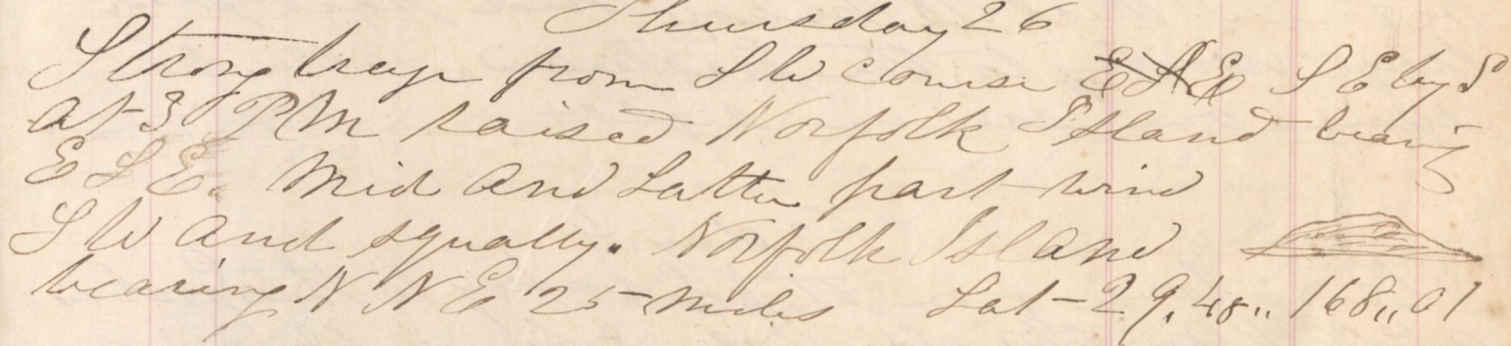 Thursday 26
Strong breeze from S W course E S E S E by S
at 3 P M raised Norfolk Island bearing
E S E. Mid and Latter part wind
S W and squally. Norfolk Island
bearing N N E 25 miles Lat - 29,48,, 168,,01